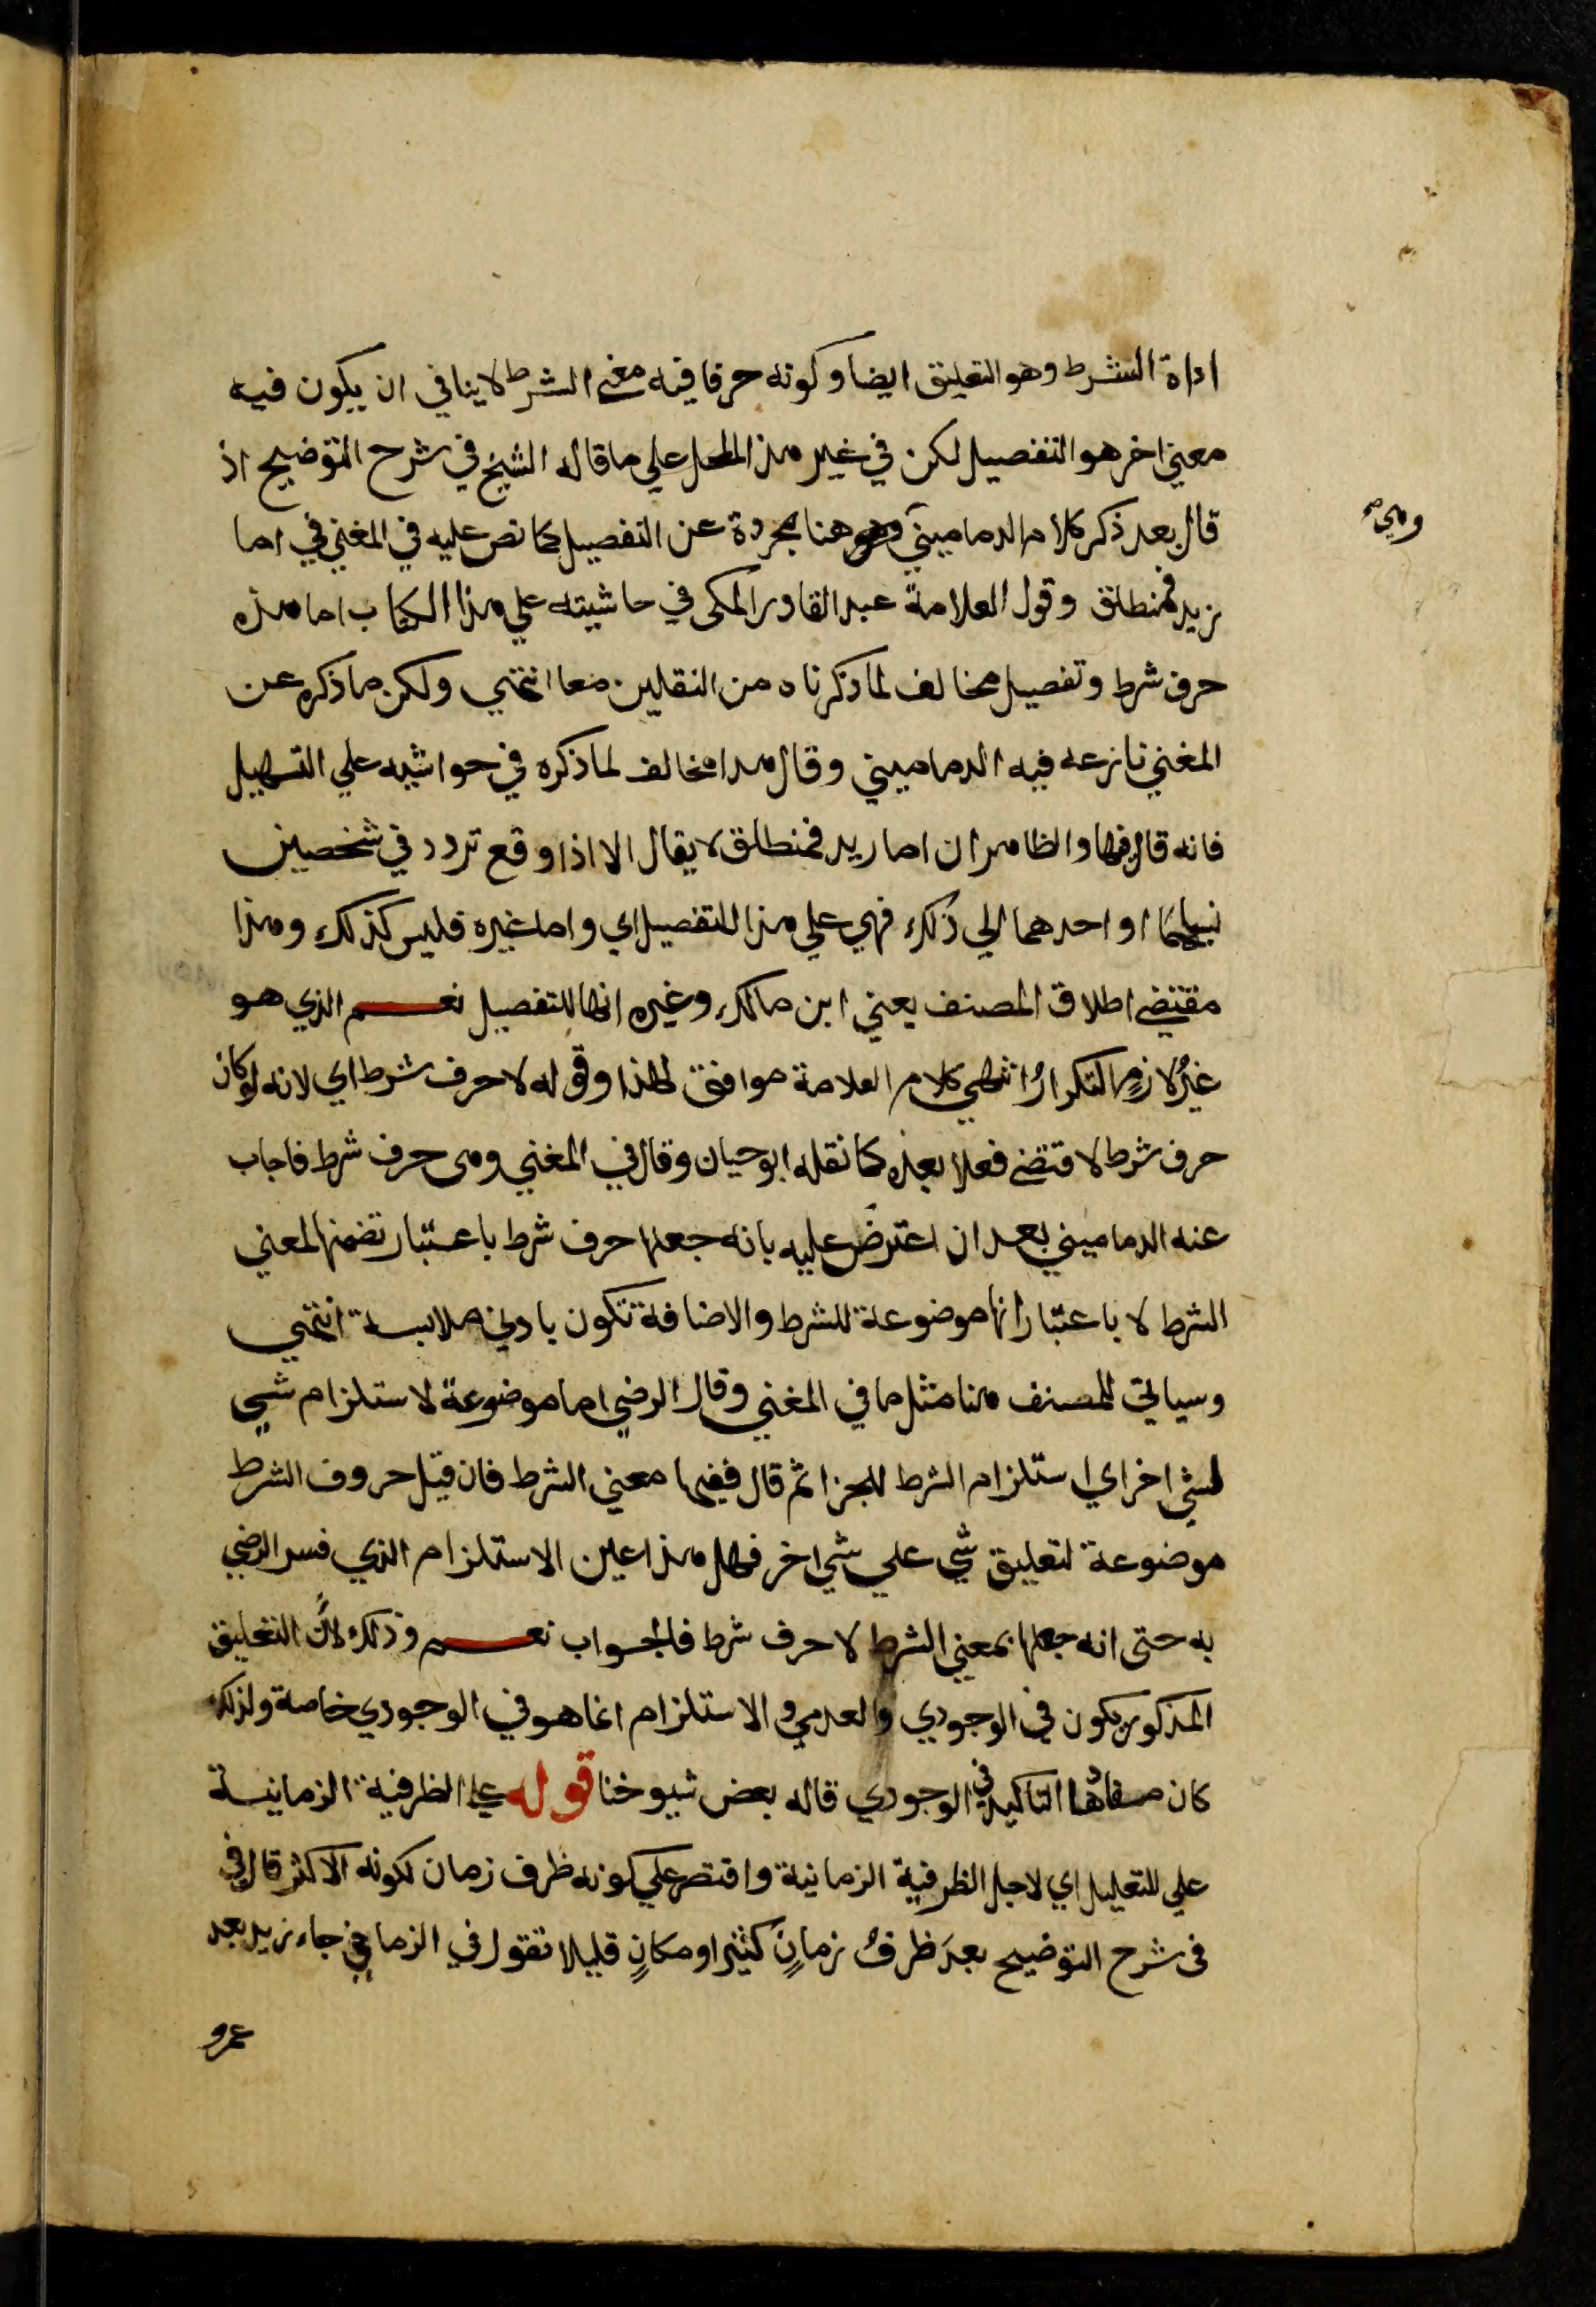 اداة الشرط وهو التعليق ايضا وكونه حرفا فيه معني الشرط لا ينافي ان يكون فيه
معني اخر هو التفصيل لكن في غير هذا المحل علي ما قاله الشيخ في شرح التوضيح اذ
قال بعد ذكر كلام الدماميني وهو هنا مجردة عن التفصيل كما نص عليه في المغني في اما
وهي صح
زيد فمنطلق وقول العلامة عبد القادر المكي في حاشيته علي هذا الكتاب اما هذه
حرف شرط وتفصيل مخالف لما ذكرناه من النقلين معا انتهي ولكن ما ذكره عن
المغني نازعه فيه الدماميني وقال هدا مخالف لما ذكره في حواشيه علي التسهيل
فانه قال فيها والظاهر ان اما زيد فمنطلق لا يقال الا اذا وقع تردد في شخصين
نسبهما او احدهما الي ذلك فهي علي هذا للتفصيل اي واما غيره فليس كذلك وهذا
مقتضي اطلاق المصنف يعني ابن مالك وغيره انها للتفصيل نعم الذي هو
غيرُ لازمٍ التكرارُ انتهي كلام العلامة موافق لهذا وقوله لا حرف شرط اي لانه لو كان
حرف شرط لاقتضي فعلا بعده كما نقله ابو حيان وقال في المغني وهي حرف شرط فاجاب
عنه الدماميني بعد ان اعترض عليه بانه جعلها حرف شرط باعتبار تضمنها لمعني
الشرط لا باعتبار انها موضوعة للشرط والاضافة تكون بادني ملابسة انتهي
وسياتي للمصنف هنا مثل ما في المغني وقال الرضي اما موضوعة لاستلزام شي
لشي اخر اي استلزام الشرط للجزا ثم قال ففيها معني الشرط فان قيل حروف الشرط
موضوعة لتعليق شي علي شي اخر فهل هذا عين الاستلزام الذي فسر الرضي
به حتى انه جعلها بمعني الشرط لا حرف شرط فالجواب نعم وذلك لانَّ التعليق
المذكور يكون في الوجودي والعدمي والاستلزام انما هو في الوجودي خاصة ولذلك
كان مفادها التاكيد في الوجودي قاله بعض شيوخنا قوله علي الظرفية الزمانية
علي للتعليل اي لاجل الظرفية الزمانية واقتصر علي كونه ظرف زمان لكونه الاكثر قال في
في شرح التوضيح بعدَ ظرفُ زمانٍ كثيرا ومكانٍ قليلا تقول في الزماني جاء زيد بعد
عمرو